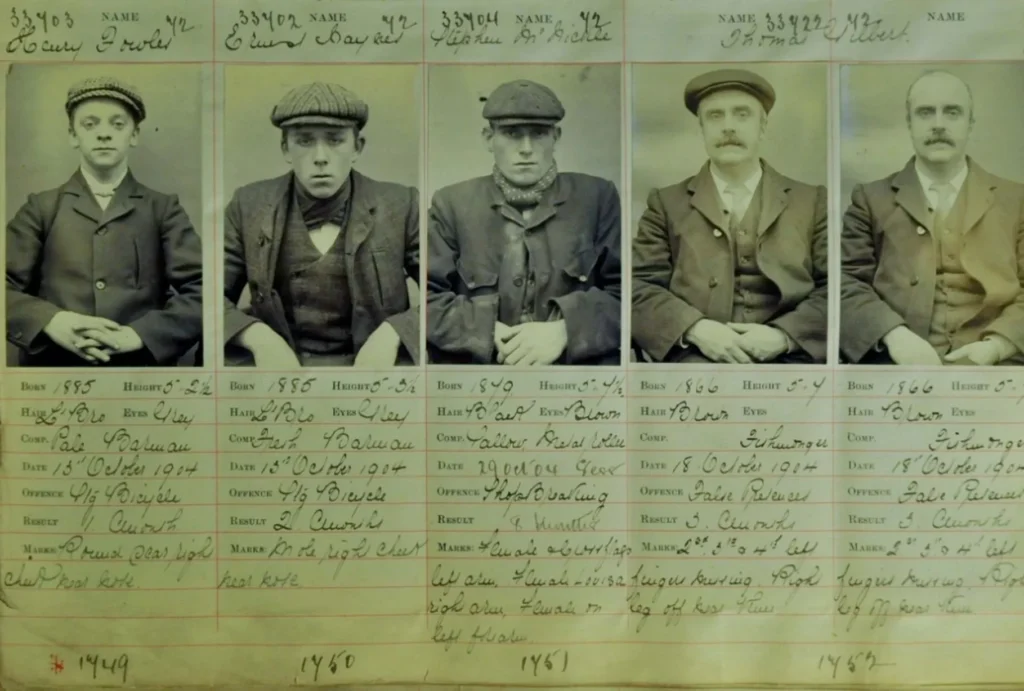 33703 NAME 72
Henry Fowler
33702 NAME 72
Ernest
33704 NAME 72
Stephen
NAME 33722 72
Thomas Gilbert
NAME
BORN 1885 HEIGHT 5-2½
HAIR Lt Bro EYES Grey
COMP. Pale Barman
DATE 15th October 1904
OFFENCE Stg Bicycle
RESULT 1 Month
MARKS: Round scar right
cheek near nose.
1749
BORN 1885 HEIGHT 5-3½
HAIR Lt Bro EYES Grey
COMP. Fresh Barman
DATE 15th October 1904
OFFENCE Stg Bicycle
RESULT 2 Months
MARKS: Mole, right cheek
near nose
1750
BORN 1879 HEIGHT 5-7½
HAIR Black EYES Brown
COMP. Sallow,
DATE 29 Oct 04
OFFENCE Shop Breaking
RESULT Months
MARKS: Female
left arm. Female Louisa
right arm. Female on
left forearm
1751
BORN 1866 HEIGHT 5-7
HAIR Brown EYES
COMP. Fishmonger
DATE 18 October 1904
OFFENCE False Pretences
RESULT 3. Months
MARKS: 2nd 3rd & 4th left
fingers missing. Right
leg off near knee
BORN 1866 HEIGHT 5-
HAIR Brown EYES
COMP. Fishmonger
DATE 18th October 1904
OFFENCE False Pretences
RESULT 3. Months
MARKS: 2nd 3rd & 4th left
fingers missing.
leg off near knee
1752